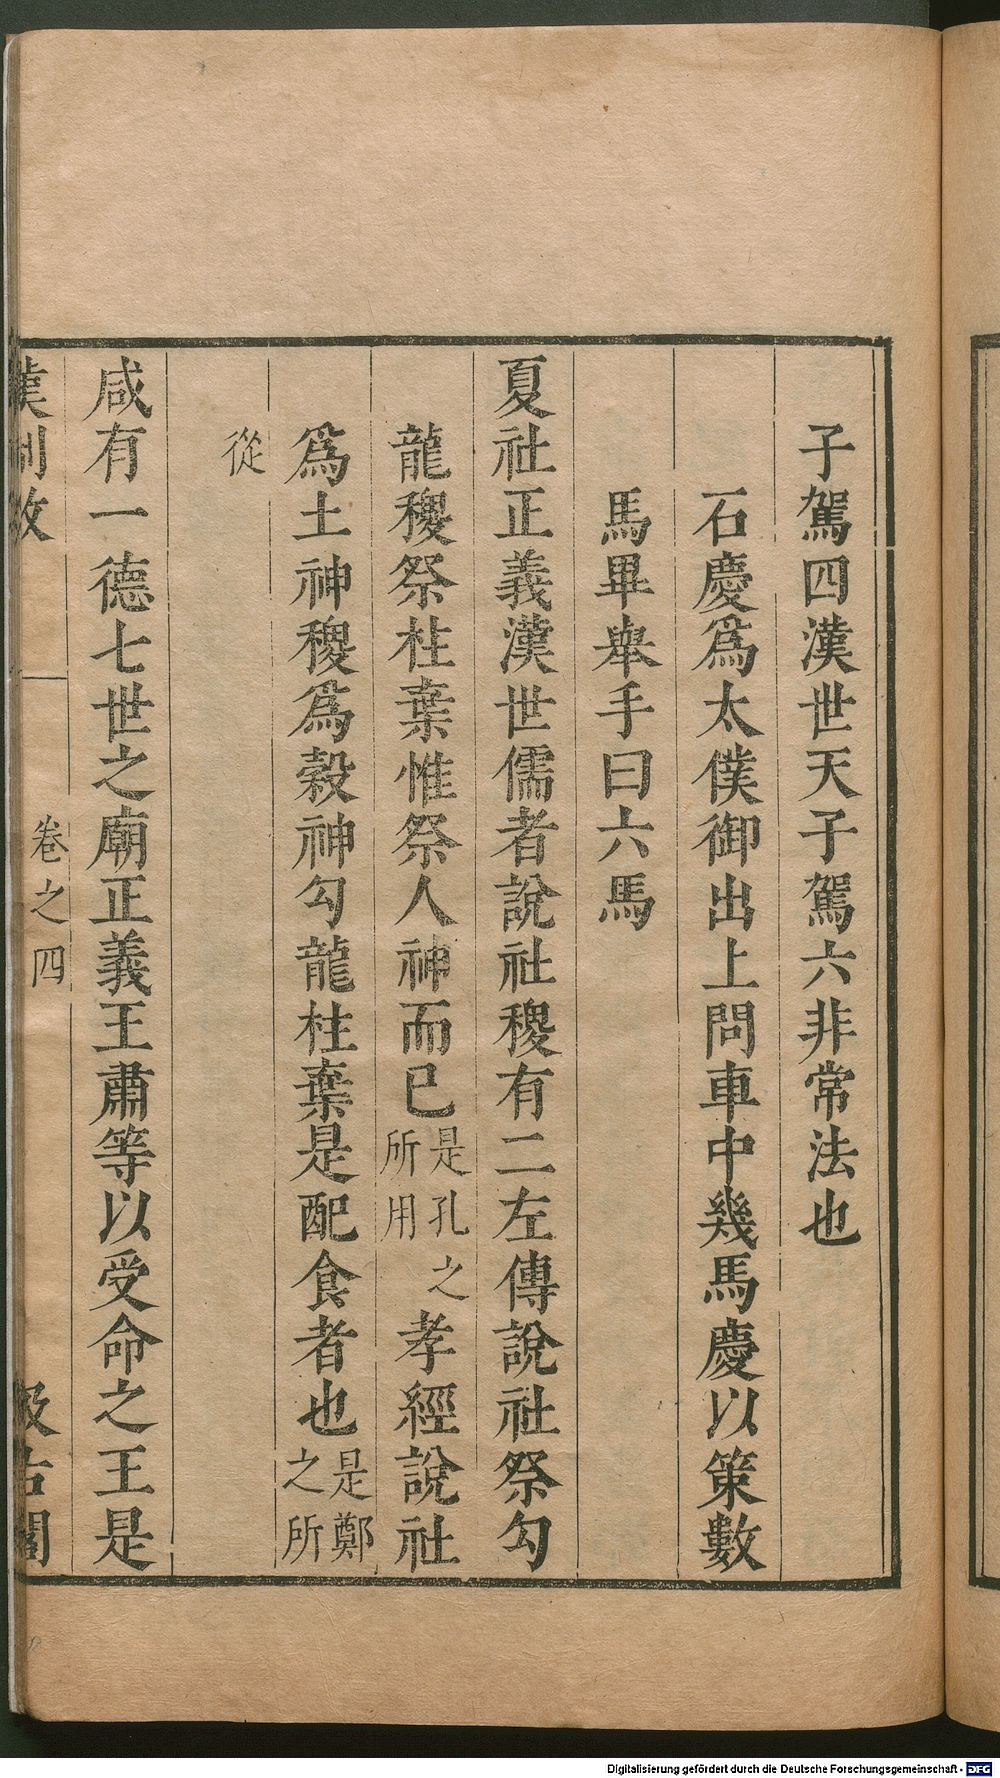 子駕四漢世天子駕六非常法也
石慶爲太僕御出上問車中幾馬慶以策數
馬畢舉手曰六馬
夏社正義漢世儒者說社稷有二左傳說社祭勾
龍稷祭柱棄惟祭人神而已是孔之所用孝經說社
爲土神稷爲榖神勾龍柱棄是配食者也是鄭之所
從
咸有一德七世之廟正義王肅等以受命之王是
漢制攷 卷之四 汲古閣
Digitalisierung gefördert durch die Deutsche Forschungsgemeinschaft - DFG